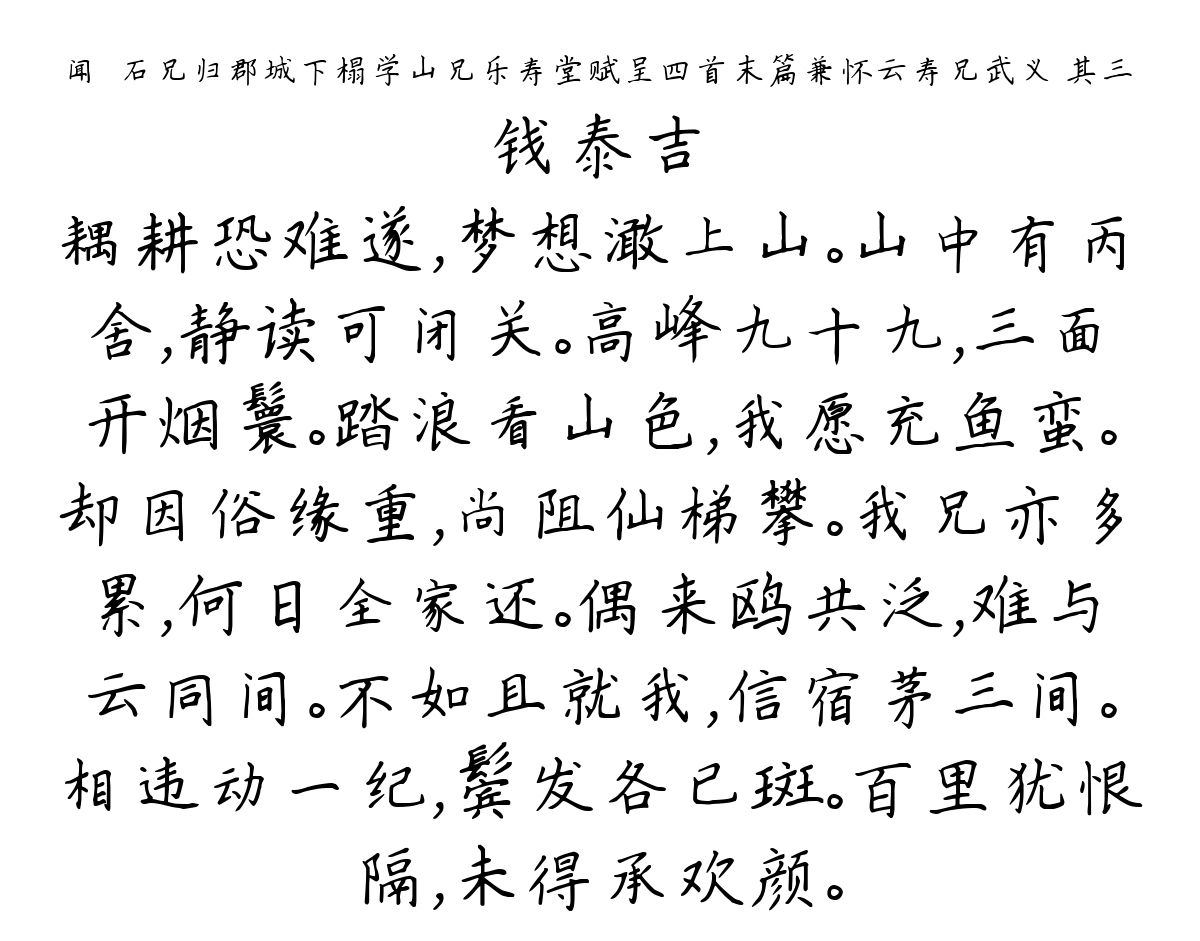 闻 石兄归郡城下榻学山兄乐寿堂赋呈四首末篇兼怀云寿兄武义 其三
钱泰吉
耦耕恐难遂,梦想澉上山。山中有丙
舍,静读可闭关。高峰九十九,三面
开烟鬟。踏浪看山色,我愿充鱼蛮。
却因俗缘重,尚阻仙梯攀。我兄亦多
累,何日全家还。偶来鸥共泛,难与
云同间。不如且就我,信宿茅三间。
相违动一纪,鬓发各已斑。百里犹恨
隔,未得承欢颜。